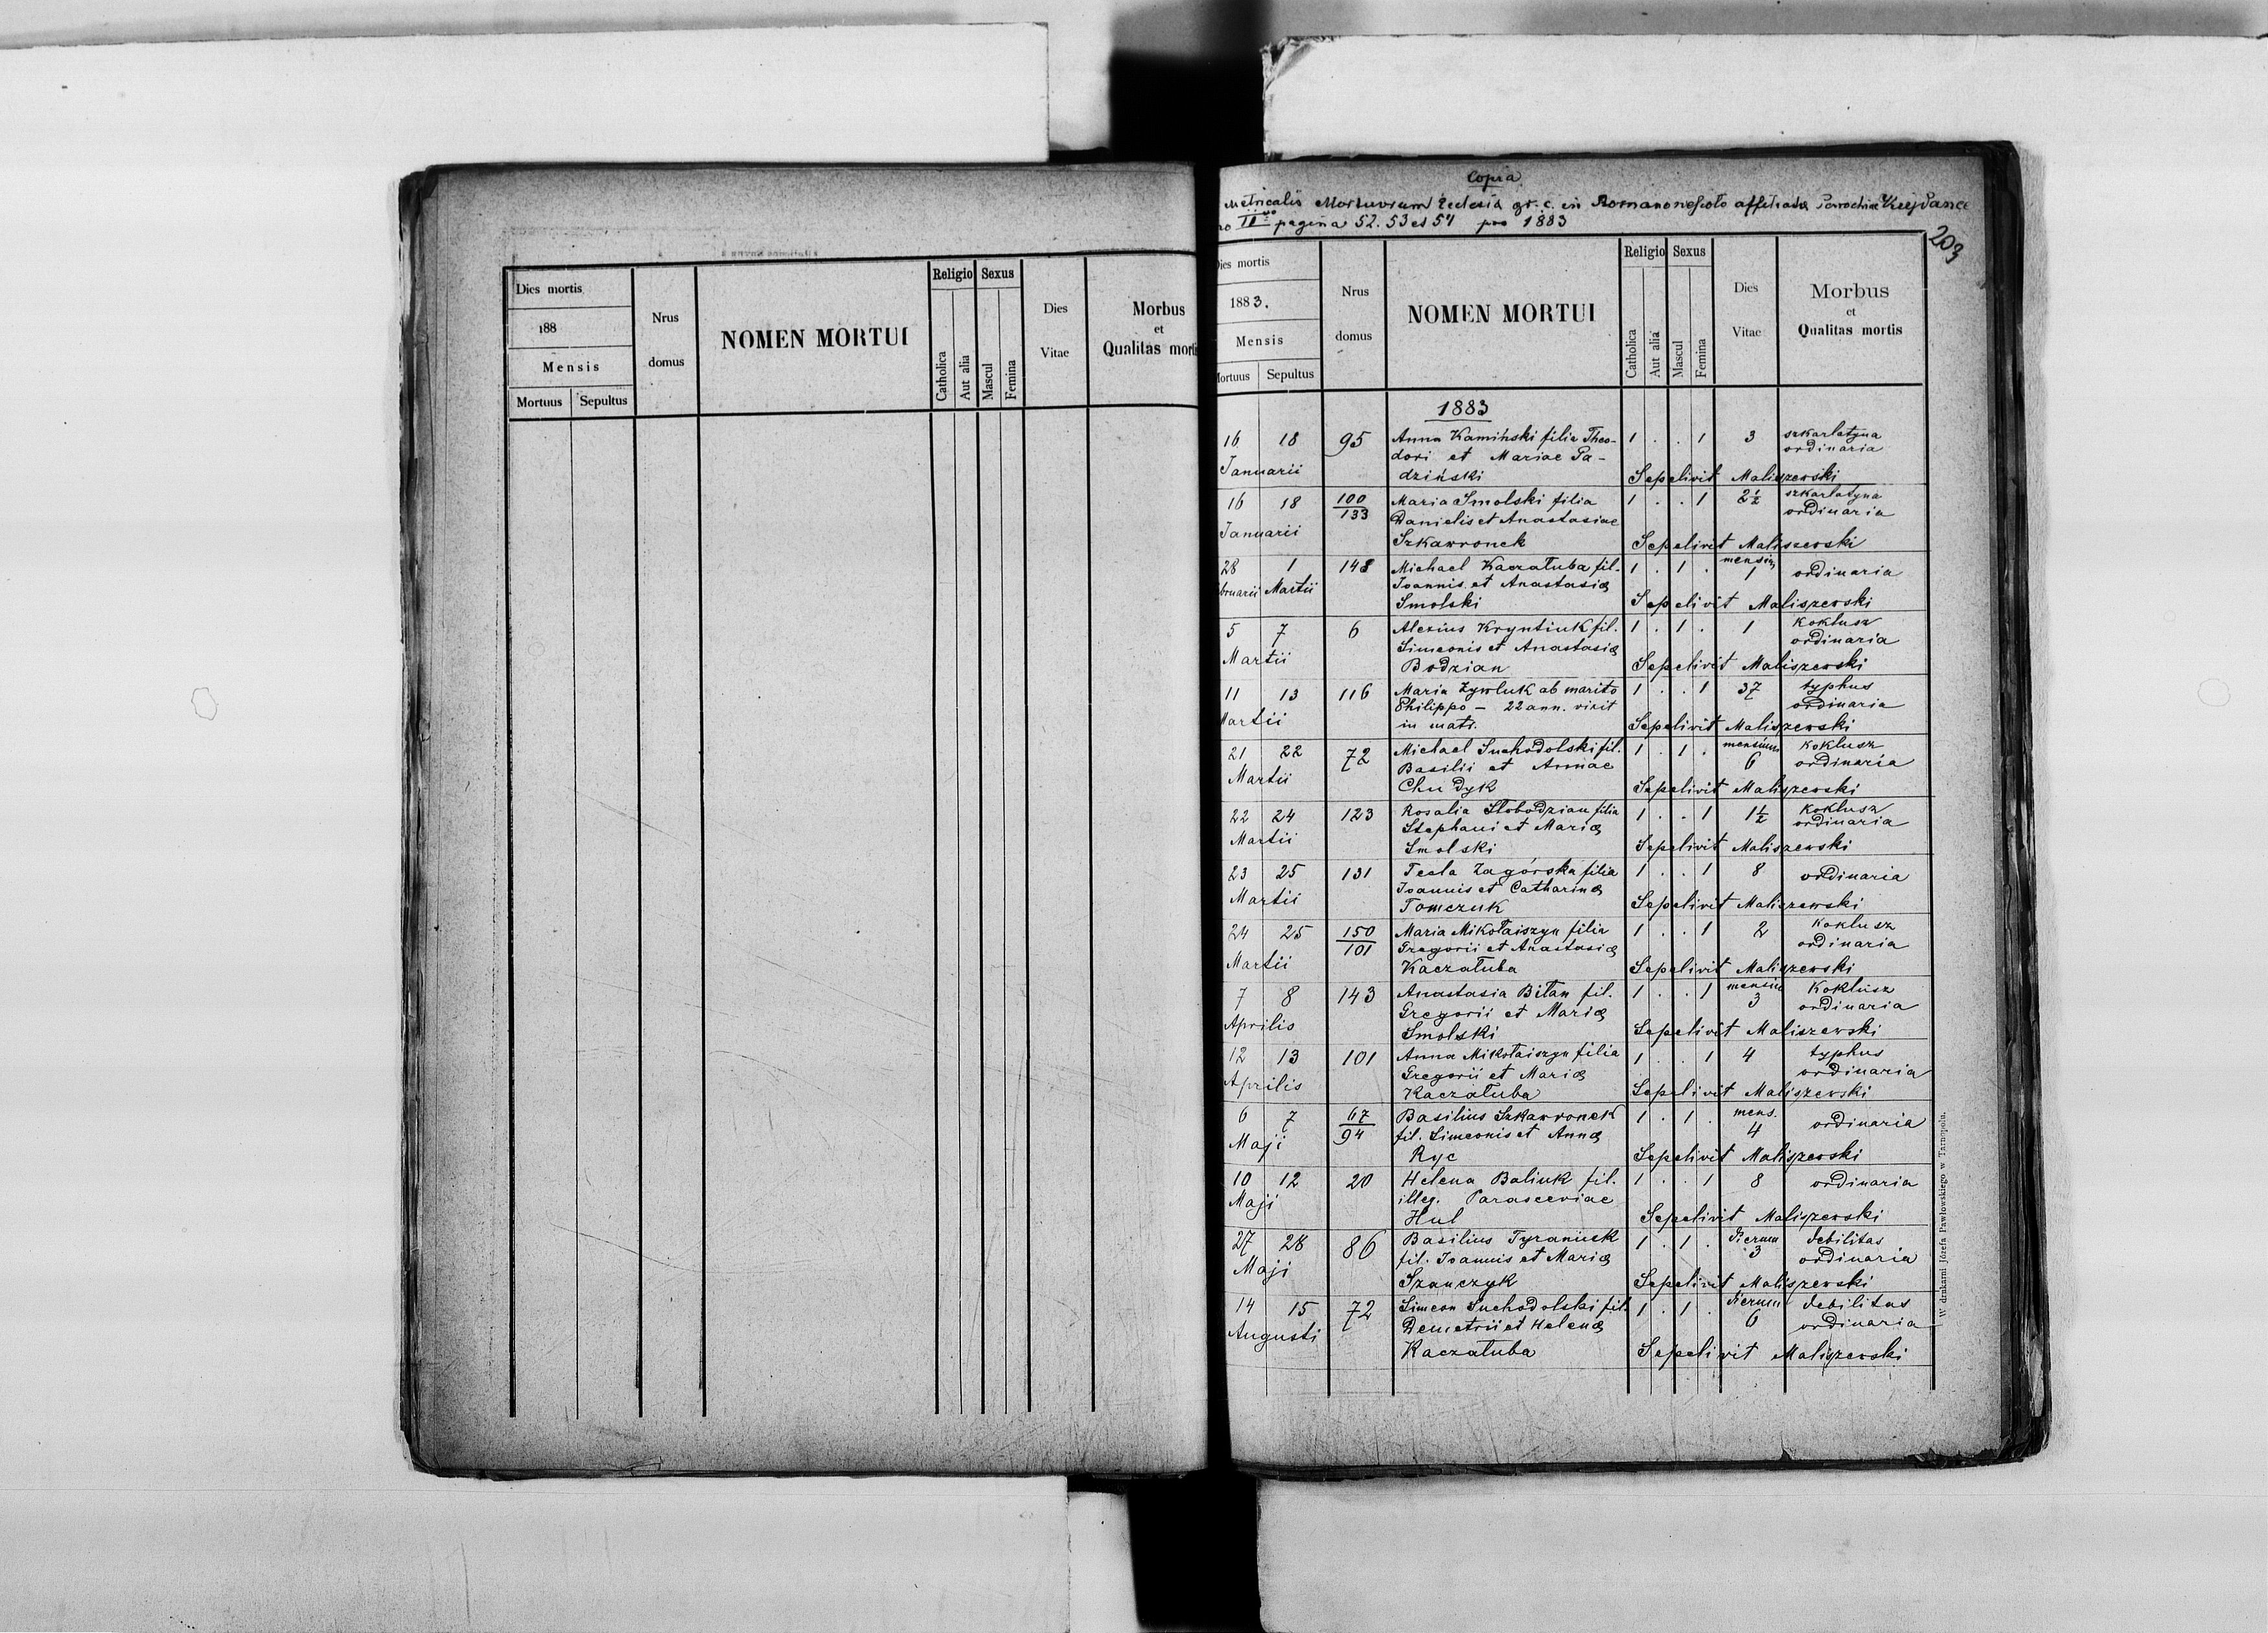 Dies mortis
188
Mensis
Mortuus Sepultus
Nrus domus
NOMEN MORTUI
Religio
Catholica
Aut alia
Sexus
Mascul
Femina
Dies Vitae
Morbus
et
Qualitas
Copia
Metricalis Mortuorum Ecclesiæ gr. c. in affiliatæ Parochiæ
II pagina 52. 53 et 54 pro 1883
203
Dies mortis
1883.
Mensis
Mortuus Sepultus
Nrus domus
NOMEN MORTUI
Religio
Catholica
Aut alia
Sexus
Mascul
Femina
Dies Vitae
Morbus
et
Qualitas mortis
1883
16 18 95 Anna Kamiński filia Theo- 1 . . 1 3 szkarlatyna
dori et Mariae Pa- ordinaria
Januarii dziński Sepelivit Maliszewski
16 18 100/133 Maria Smolski filia 1 . . 1 2½ szkarlatyna
Danielis et Anastasiae ordinaria
Januarii Szkawronek Sepelivit Maliszewski
28 1 148 Michael Kaczałuba fil. 1 . 1 . mensis 1 ordinaria
bruarii Martii Joannis et Anastasiæ
Smolski Sepelivit Maliszewski
5 7 6 Alexius Kryntiuk fil. 1 . 1 . 1 koklusz
Martii Simeonis et Anastasiæ ordinaria
Bodzian Sepelivit Maliszewski
11 13 116 Maria Zywluk ab marito 1 . . 1 37 typhus
Philippo – 22 ann. vixit ordinaria
Martii in matr. Sepelivit Maliszewski
21 22 72 Michael Suchodolski fil. 1 . 1 . mensium 6 koklusz
Martii Basilii et Annae ordinaria
Chudyk Sepelivit Maliszewski
22 24 123 Rosalia Slobodzian filia 1 . . 1 1½ koklusz
Martii Stephani et Mariæ ordinaria
Smolski Sepelivit Maliszewski
23 25 131 Tecla Zagórska filia 1 . . 1 8 ordinaria
Martii Joannis et Catharinæ
Tomczuk Sepelivit Maliszewski
24 25 150/101 Maria Mikołaiszyn filia 1 . . 1 2 koklusz
Gregorii et Anastasiæ ordinaria
Martii Kaczałuba Sepelivit Maliszewski
7 8 143 Anastasia Bilan fil. 1 . . 1 3 koklusz
Aprilis Gregorii et Mariæ ordinaria
Smolski Sepelivit Maliszewski
12 13 101 Anna Mikołaiszyn filia 1 . . 1 4 typhus
Aprilis Gregorii et Mariæ ordinaria
Kaczałuba Sepelivit Maliszewski
6 7 67/94 Basilius Szkawronek 1 . 1 . mens. 4 ordinaria
Maji fil. Simeonis et Annæ
Ryc Sepelivit Maliszewski
10 12 20 Helena Baliuk fil. 1 . . 1 8 ordinaria
Maji illeg. Parasceviae
Hul Sepelivit Maliszewski
27 28 86 Basilius 1 . 1 . dierum 3 debilitas
Maji fil. Joannis et Mariæ ordinaria
Szanczyk Sepelivit Maliszewski
14 15 72 Simeon Suchodolski fil. 1 . 1 . dierum 6 debilitas
Augusti Demetrii et Helenæ ordinaria
Kaczałuba Sepelivit Maliszewski
W drukarni Józefa Pawłowskiego w Tarnopolu.